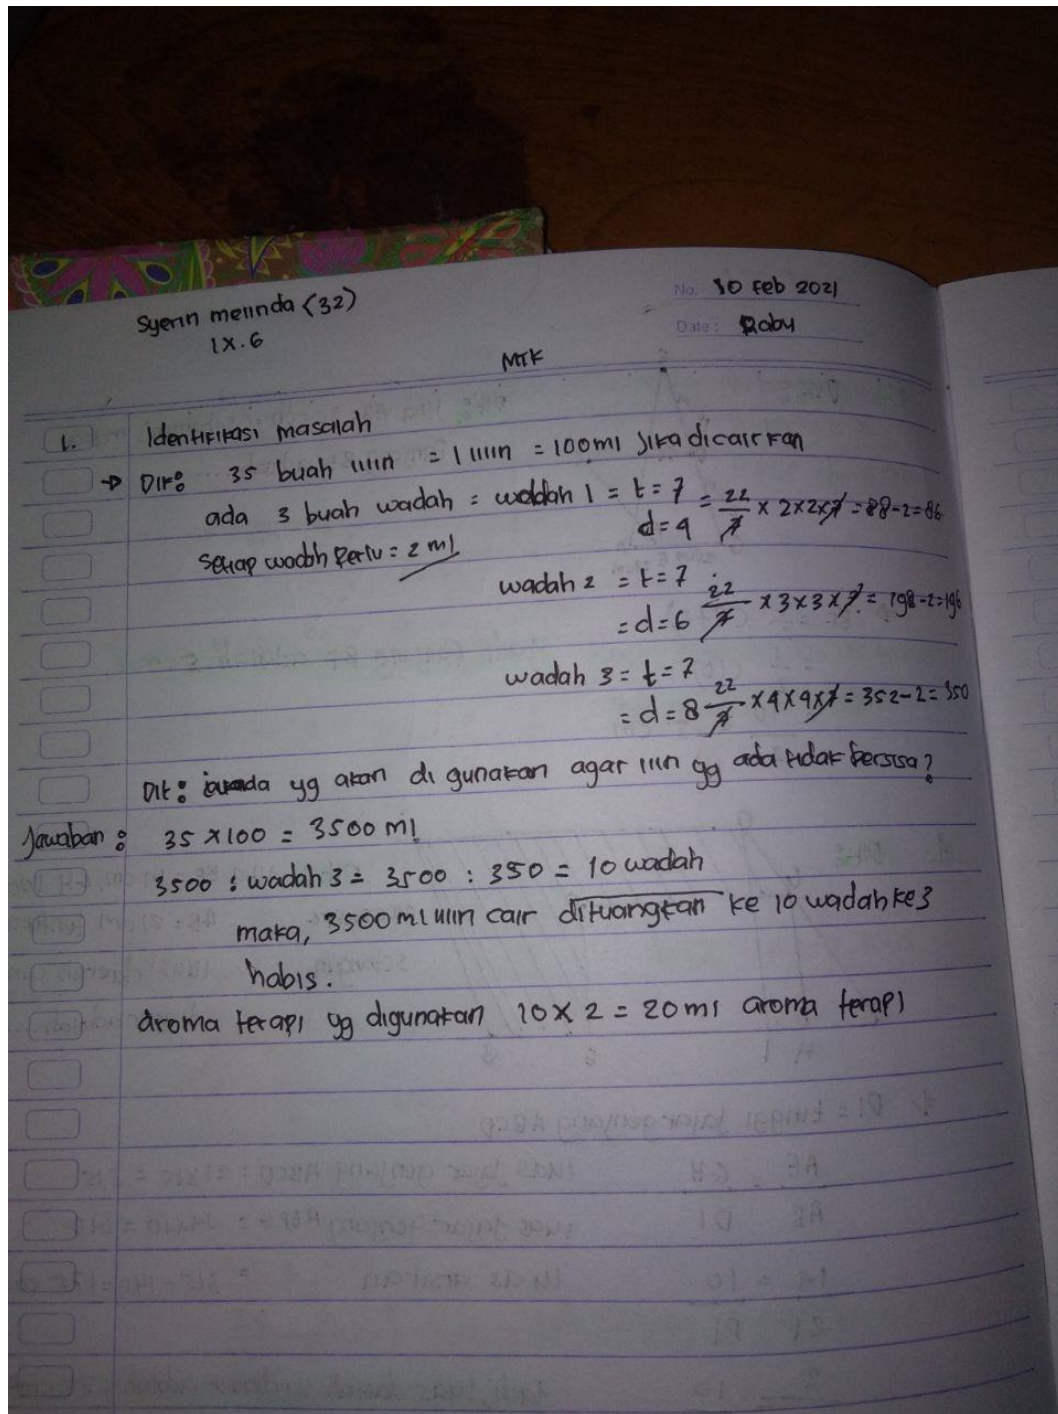 No. 10 Feb 2021
Date: Rabu
Syerin melinda (32)
IX.6
MTK
1. Identifikasi masalah
→ Dik: 35 buah lilin = 1 lilin = 100ml jika dicairkan
ada 3 buah wadah = wadah 1 = t=7 = 22/7 x 2x2x7 = 88-2=86
d=4
setiap wadah perlu = 2 ml
wadah 2 = t=7
= d=6 22/7 x3x3x7 = 198-2=196
wadah 3 = t=7
= d=8 22/7 x4x4x7 = 352-2= 350
Dit: yg akan di gunakan agar lilin yg ada tidak bersisa?
Jawaban: 35 x100 = 3500 ml
3500 : wadah 3 = 3500 : 350 = 10 wadah
maka, 3500 ml lilin cair dituangkan ke 10 wadah ke3
habis.
aroma terapi yg digunakan 10 x 2 = 20 ml aroma terapi